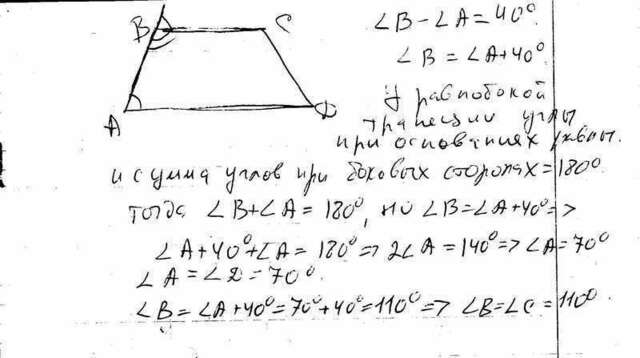 B C
A D
∠B - ∠A = 40°
∠B = ∠A + 40°
У равнобокой
трапеции углы
при основаниях равны.
и сумма углов при боковых сторонах = 180°
тогда ∠B + ∠A = 180°, но ∠B = ∠A + 40° =>
∠A + 40° + ∠A = 180° => 2∠A = 140° => ∠A = 70°
∠A = ∠D = 70°
∠B = ∠A + 40° = 70° + 40° = 110° => ∠B = ∠C = 110°